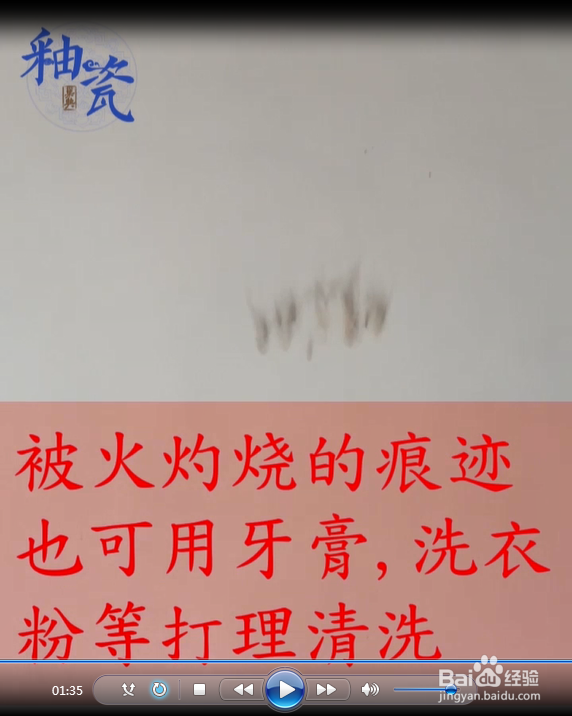 釉瓷
被火灼烧的痕迹
也可用牙膏,洗衣
粉等打理清洗
01:35
Bai经验
jingyan.baidu.com